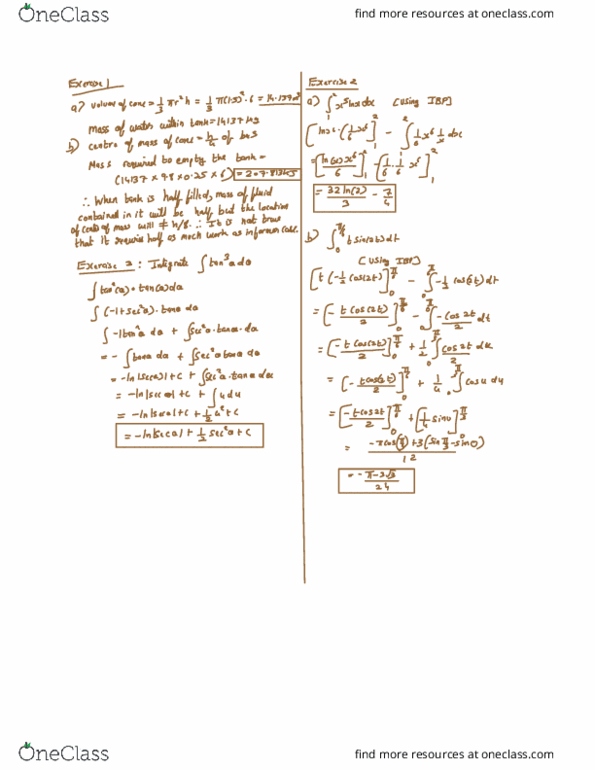 OneClass
find more resources at oneclass.com
Exercise 1
a) volume of cone = 1/3 πr²h = 1/3 π(1.5)²·6 = 14.137m³
Mass of water within tank = 14137 kg
b) centre of mass of cone = h/4 of base
Mass required to empty the tank =
(14137 × 9.8 × 0.25 × 6) = 207.813KJ
∴ When tank is half filled, mass of fluid
contained in it will be half but the location
of centre of mass will ≠ h/8. ∴ It is not true
that it requires half as much work as
Exercise 3 : Integrate ∫tan³a da
∫tan²(a)·tan(a)da
∫(-1+sec²a)·tana da
∫-1tana da + ∫sec²a·tana·da
= -∫tana da + ∫sec²a tana da
= -ln|sec(a)|+c + ∫sec²a·tana da
= -ln|sec a|+c + ∫u du
= -ln|seca|+c + 1/2 u²+c
= -ln|sec a| + 1/2 sec²a + c
Exercise 2
a) ∫₁² x⁵lnx dx [Using IBP]
[lnx·(1/6 x⁶)]₁² - ∫₁² 1/6 x⁶ 1/x dx
= [ln(x)x⁶/6]₁² - [1/6·1/6 x⁶]₁²
= 32ln(2)/3 - 7/4
b) ∫₀ t sin(2t)dt
[Using IBP]
[t(-1/2 cos(2t)]₀ - ∫₀ -1/2 cos(2t)dt
= [-t cos(2t)/2]₀ - ∫₀ -cos2t/2 dt
= [-t cos(2t)/2]₀ + 1/2 ∫₀ cos2t dt
= [-t cos(2t)/2]₀ + 1/4 ∫₀ cosu du
= [-t cos2t/2]₀ + [1/4 sinu]₀
= -πcos(π/3)+3(sin π/3 - sin0)/12
OneClass
find more resources at oneclass.com